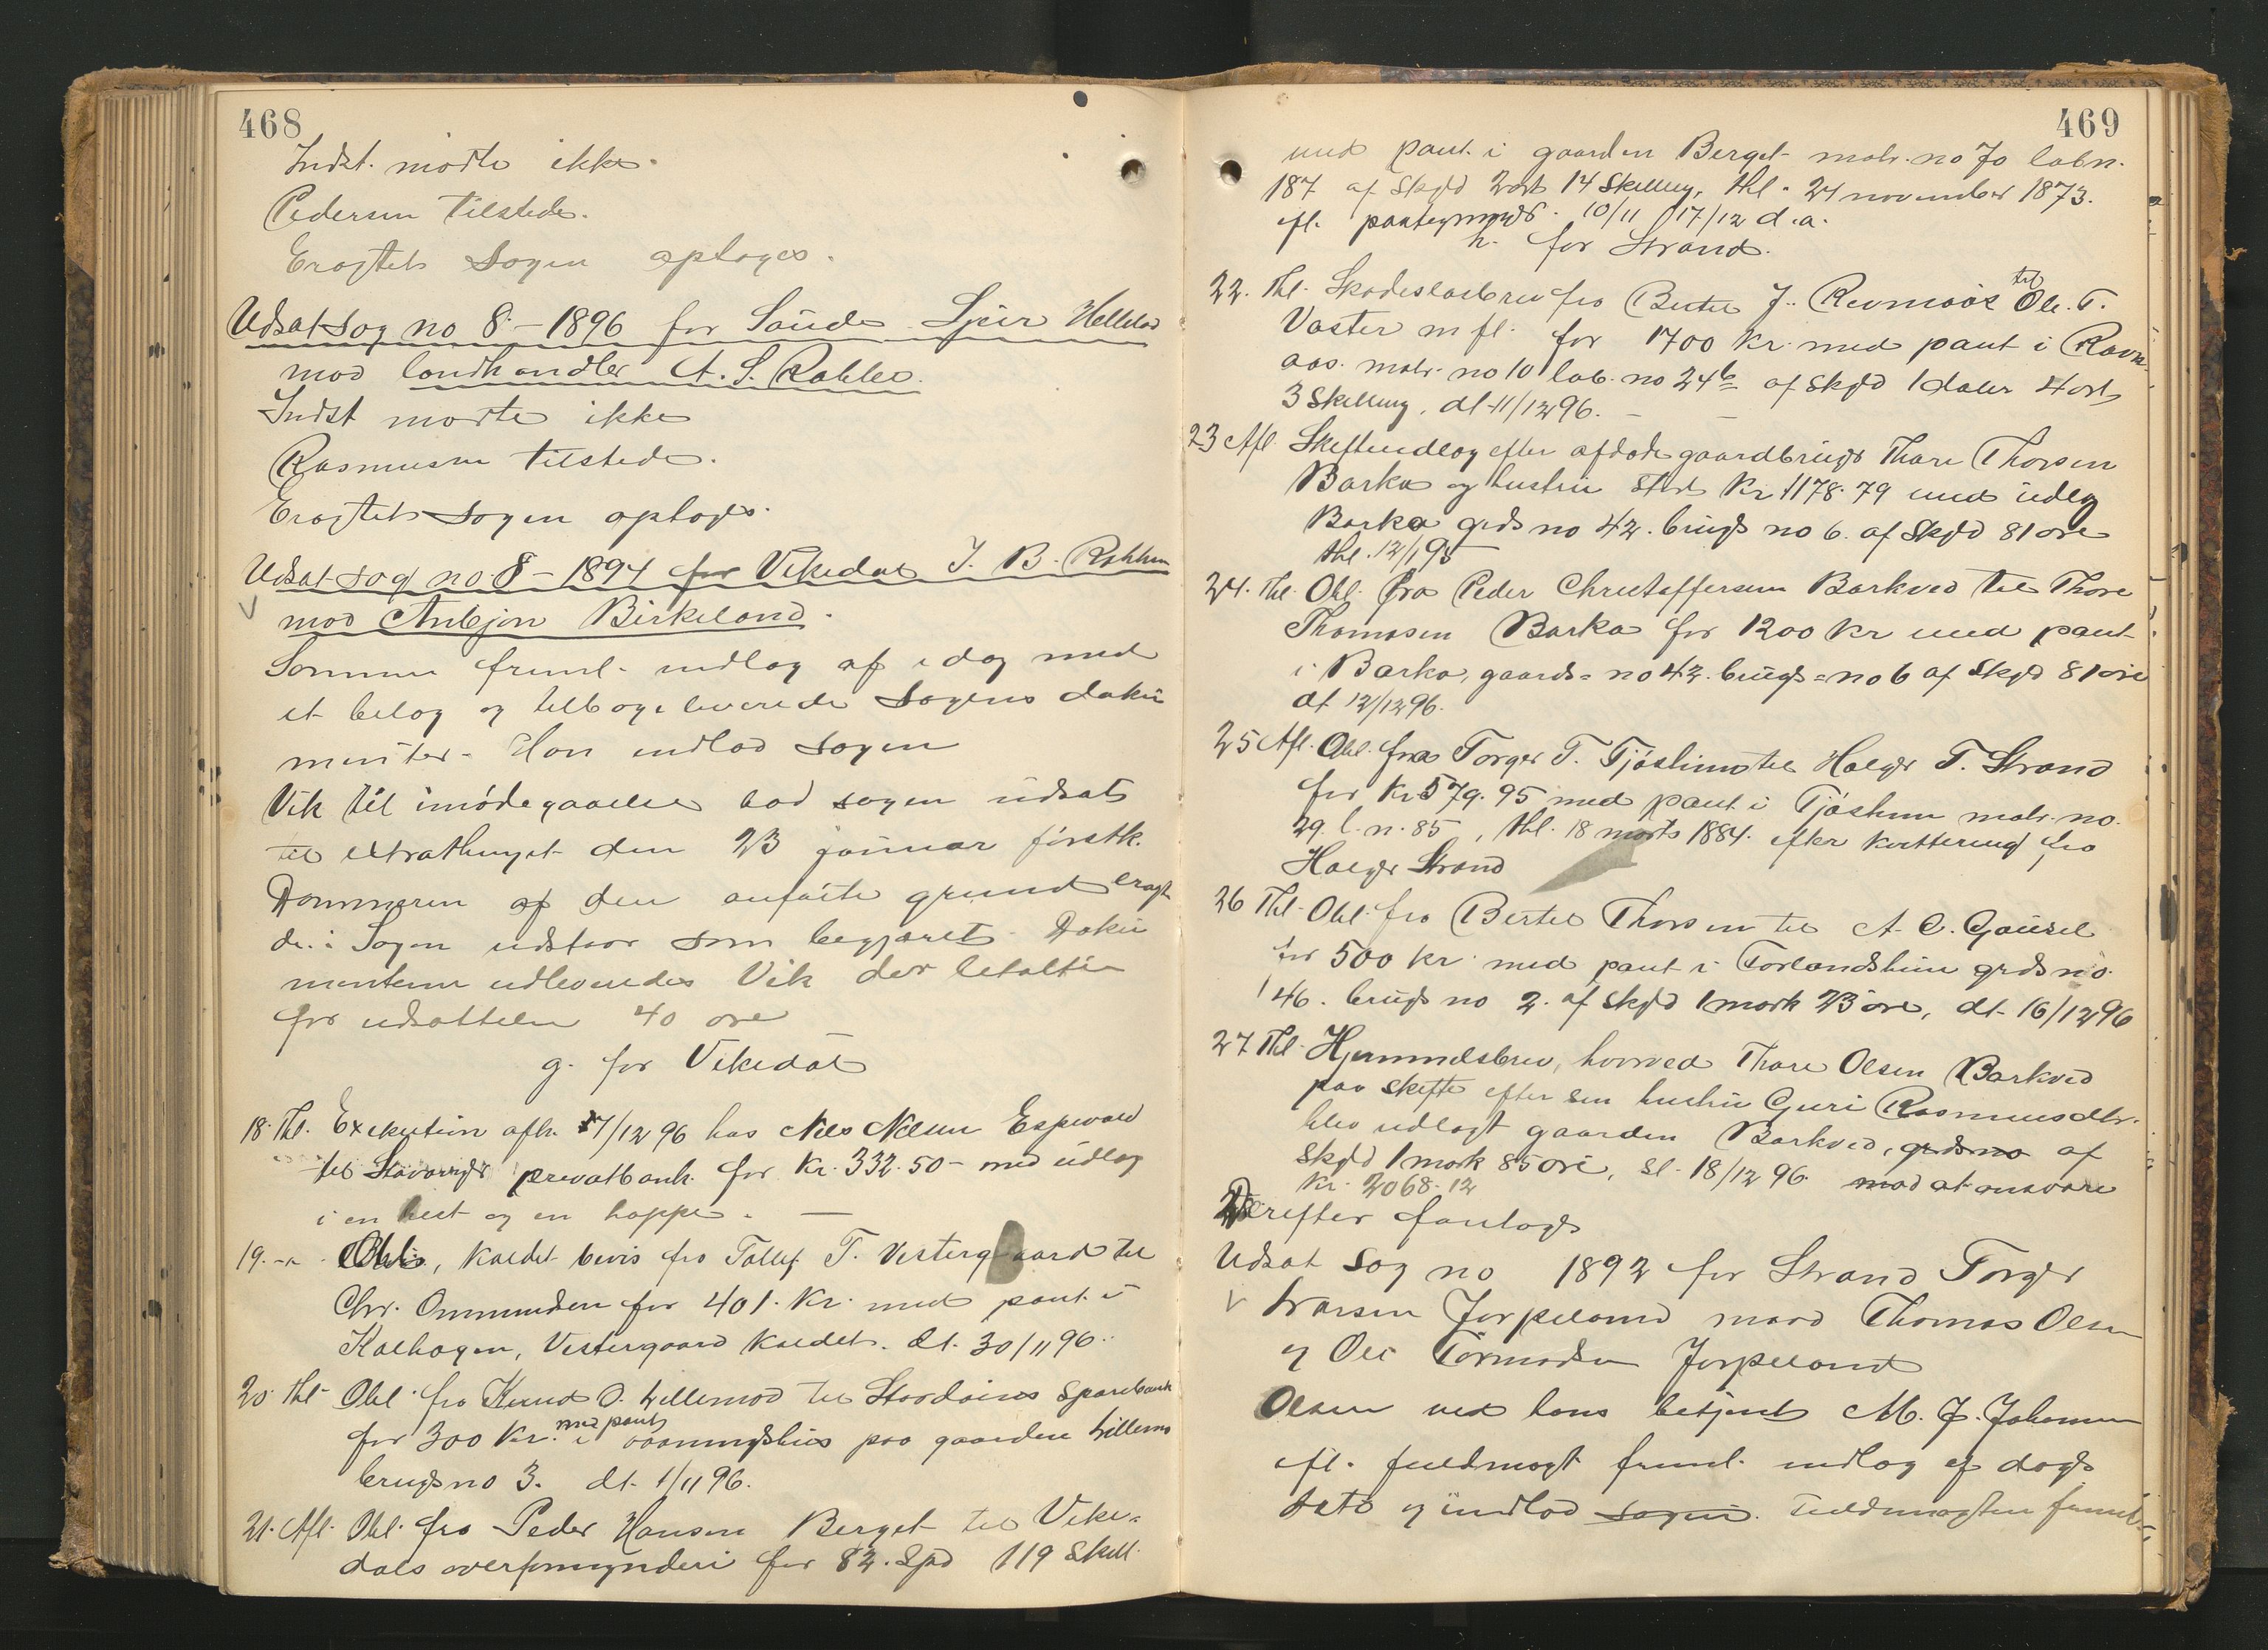 468
Indst. mødte ikke.
Pedersen tilstede.
Eragtet: Sagen optages.
Udsat sag no 8 – 1896 for Saude Sjur
mod landhandler A. S.
Indst mødte ikke
Rasmusen tilstede.
Eragtet Sagen optages.
Udsat sag no 8 – 1894 for Vikedal J. B.
mod Anbjørn Birkeland.
Sømme freml. indlæg af idag med
et bilag og tilbageleverede sagens doku
menter. Han indlod sagen
Vik til imødegaaelse bad sagen udsat
til extrathinget den 23 januar førstk.
Dommeren af den anførte grund eragt
de: Sagen udstaar som begjæret. Doku
menterne udleveredes Vik der betalte
for udsættelsen 40 øre
g. for Vikedal
18. Thl. Exekution afh. 7/12 96 hos Nils Nilsen Espevold
til Stavanger privatbank for Kr. 332.50 – med udlæg
i en hest og en hoppe. —
19. – " – Obl., kaldet bevis fra Tollef T. Vestergaard til
Chr. Ommundsen for 401. Kr. med pant i
Kalhagen, Vestergaard kaldet. dt. 30/11 96.
20. thl Obl. fra Knud O. Lillemo til Stordøens Sparebank
for 300 Kr. med pant i vaaningshus paa gaarden Lillemo
brugsno 3. dt. 1/11 96.
21. Afl. Obl. fra Peder Hansen Berget til Vike-
dals overformynderi for 82. Spd 119 Skill.
469
med pant i gaarden Berget matr. no 70 løbn.
187 af Skyld 2 ort 14 Skilling, thl. 24 november 1873.
ifl. 10/11 17/12 d.a.
h. for Strand.
22. Thl. Skadesløsbrev fra J. til Ole T.
Vaster m fl. for 1700 Kr. med pant i Ravn-
aas. matr. no 10 løb. no 24b af skyld 1 daler 4 ort
3 Skilling, dt 11/12 96. –
23 Afl Skifteudlæg efter afdøde gaardbruger Thore Thorsen
Barka og hustru stort Kr 1178.79 med udlæg
Barka grds no 42. brugs no 6. af Skyld 81 øre
thl. 12/1 95
24. thl. Obl. fra Peder Christoffersen Barkved til Thore
Thomasen Barka for 1200 Kr med pant
i Barka, gaards-no 42. brugs-no 6 af Skyld 81 øre
dt 12/12 96.
25 Afl. Obl. fra Torger T. Tjøstheim til Holger T. Strand
for Kr 579.95 med pant i Tjøsthem matr. no.
29. l. n. 85, thl. 18 marts 1884. efter kvittering fra
Holger Strand
26 Thl. Obl. fra Bertel Thorsen til A. C. Gausel
for 500 Kr. med pant i grds no.
46. brugs no 2. af Skyld 1 mark 23 øre, dt. 16/12 96
27 Thl. Hjemmelsbrev, hvorved Thore Olsen Barkved
paa skifte efter sin hustru Guri Rasmusdtr.
blev udlagt gaarden Barkved, grdsno af
skyld 1 mark 85 øre, sl. 18/12 96. mod at ansvare
Kr. 2068.12
Derefter foretoges
Udsat sag no 1892 for Strand Torger
Larsen Jørpeland mod Thomas Olsen
og Ole Tormodsen Jørpeland
Olsen ved hans betjent M. J. Johannesen
ifl. fuldmagt freml. indlæg af dags
dato og indlod sagen. fuldmagten freml.